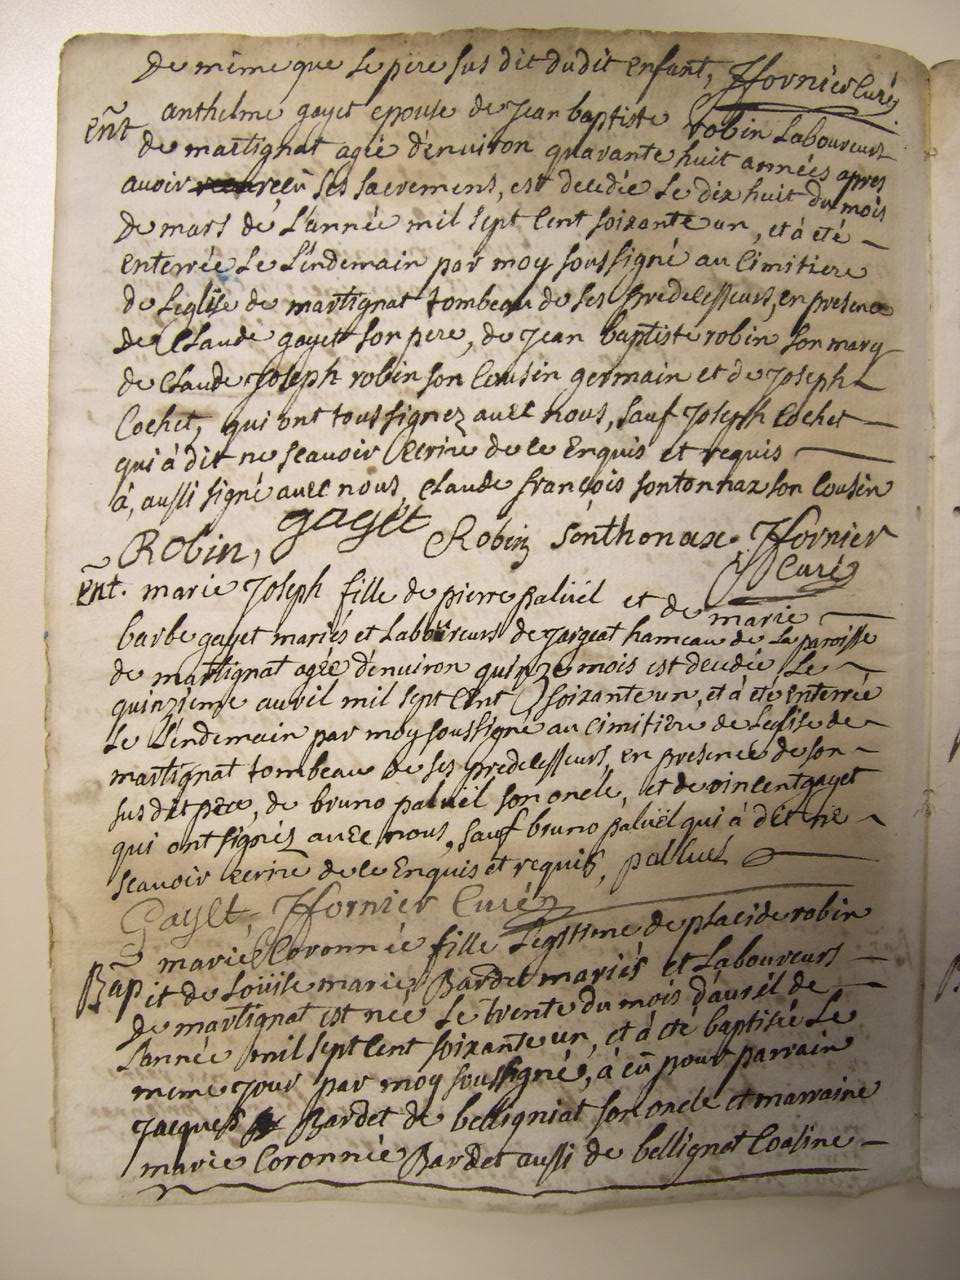 de même que le père sus dit dudit enfant, Jfornier Curé
Ent anthelme gayet epouse de Jean baptiste robin Laboureurs
de martignat agée d'environ quarante huit années apres
avoir reçû ses sacremens, est decedée le dix huit du mois
de mars de L'année mil sept cent soixante un, et à été
enterrée Le L'endemain par moy soussigné au cimitiere
de Leglise de martignat tombeau de ses predecesseurs, en presence
de Claude gayet son pere, de Jean baptiste robin son mary
de Claude Joseph robin son cousin germain et de Joseph
Cochet, qui ont tous signez avec nous, sauf Joseph Cochet
qui à dit ne scavoir Ecrire de ce Enquis et requis
à, aussi signé avec nous, Claude françois sontonnax son cousin
Robin, gayet Robin Sonthonax. Jfornier
Curé
Ent. marie Joseph fille de pierre paluël et de marie
barbe gayet mariés et Laboureurs de Jargeat hameau de La paroisse
de martignat agée d'environ quinze mois est decedée Le
quinzieme avril mil sept cent soixante un, et à été enterrée
Le L'endemain par moy soussigné au cimitiere de L'eglise de
martignat tombeau de ses predecesseurs, en presence de son
sus dit pere, de bruno paluël son oncle, et de vincent gayet
qui ont signés avec nous, sauf bruno paluël qui à dit ne
scavoir ecrire de ce Enquis et requis, palluel
Gayet, Jfornier Curé
marie Coronnée fille Legitime de placide robin
Bap et de Loüise marie Bardet mariés et Laboureurs
de martignat est née Le trente du mois d'avril de
L'année mil sept cent soixante un, et à été baptisée Le
meme jour par moy soussigné, à eû pour parrain
Jacques Bardet de belligniat son oncle et marraine
marie Coronnée Bardet aussi de bellignat Coasine